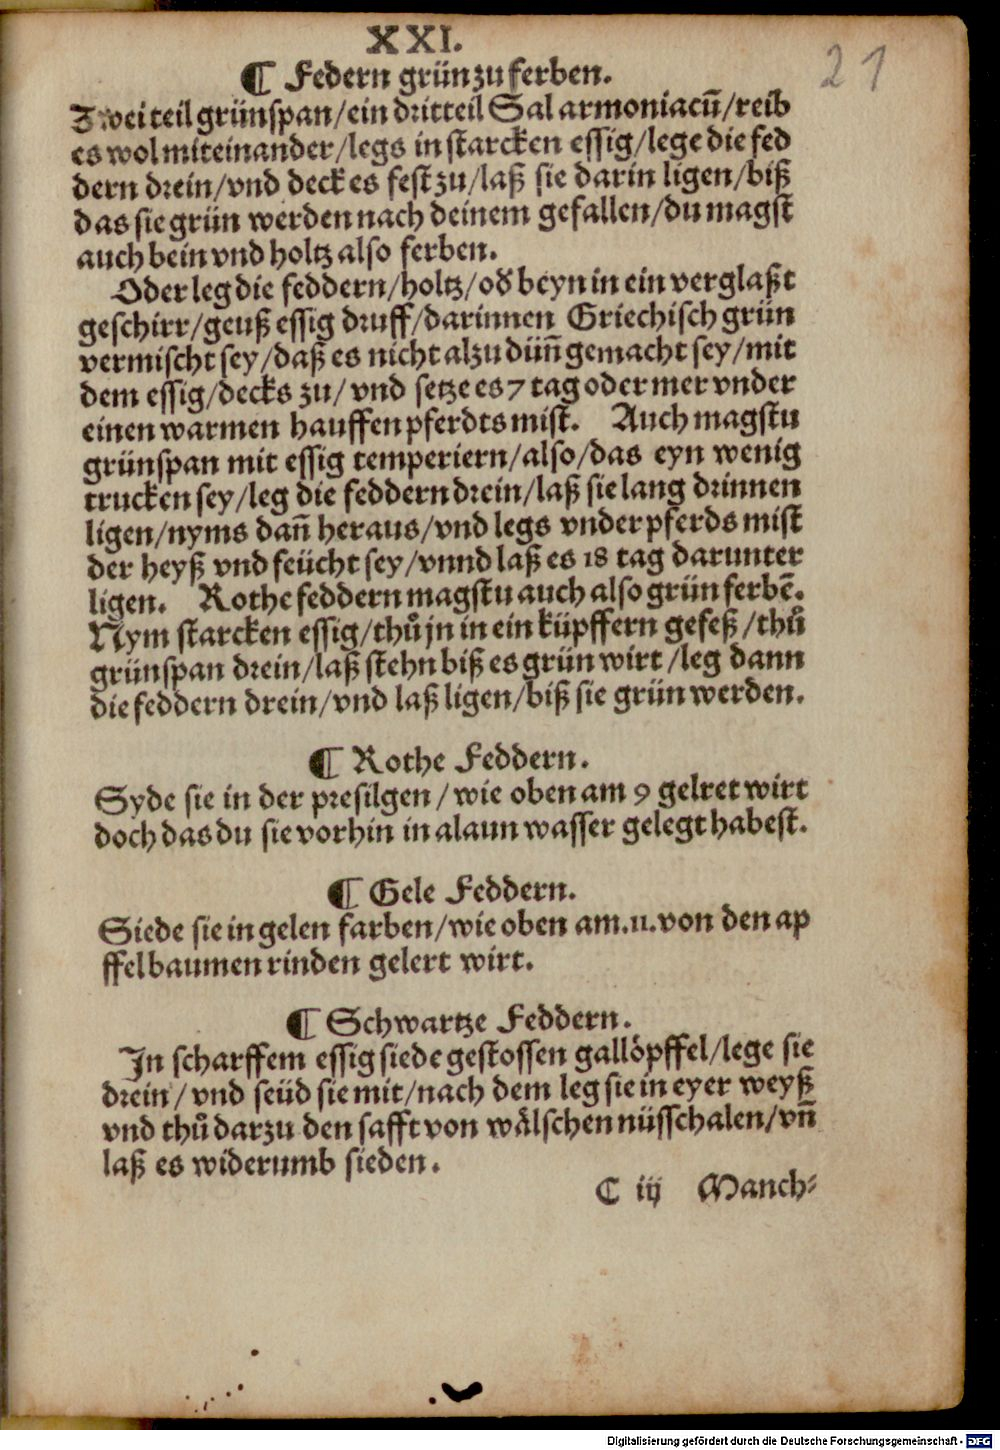 XXI.
21
¶ Federn grün zu ferben.
Zwei teil grünspan/ein dritteil Sal armoniacū/reib
es wol miteinander/legs in starcken essig/lege die fed
dern drein/vnd deck es fest zu/laß sie darin ligen/biß
das sie grün werden nach deinem gefallen/du magst
auch bein vnd holtz also ferben.
Oder leg die feddern/holtz/od̕ beyn in ein verglaßt
geschirr/geuß essig druff/darinnen Griechisch grün
vermischt sey/daß es nicht alzu düñ gemacht sey/mit
dem essig/decks zu/ vnd setze es 7 tag oder mer vnder
einen warmen hauffen pferdts mist. Auch magstu
grünspan mit essig temperiern/also/das eyn wenig
trucken sey/leg die feddern drein/laß sie lang drinnen
ligen/nyms dañ heraus/vnd legs vnder pferds mist
der heyß vnd feücht sey/vnnd laß es 18 tag darunter
ligen. Rothe feddern magstu auch also grün ferbē.
Nym starcken essig/thů jn in ein küpffern gefeß/thů
grünspan drein/laß stehn biß es grün wirt/leg dann
die feddern drein/vnd laß ligen/biß sie grün werden.
¶ Rothe Feddern.
Syde sie in der presilgen/wie oben am 9 gelret wirt
doch das du sie vorhin in alaun wasser gelegt habest.
¶ Gele Feddern.
Siede sie in gelen farben/wie oben am.11.von den ap
ffelbaumen rinden gelert wirt.
¶ Schwartze Feddern.
In scharffem essig siede gestossen gallöpffel/lege sie
drein/ vnd seüd sie mit/nach dem leg sie in eyer weyß
vnd thů darzu den safft von wälschen nüsschalen/vñ
laß es widerumb sieden.
C iij Manch⸗
Digitalisierung gefördert durch die Deutsche Forschungsgemeinschaft - DFG